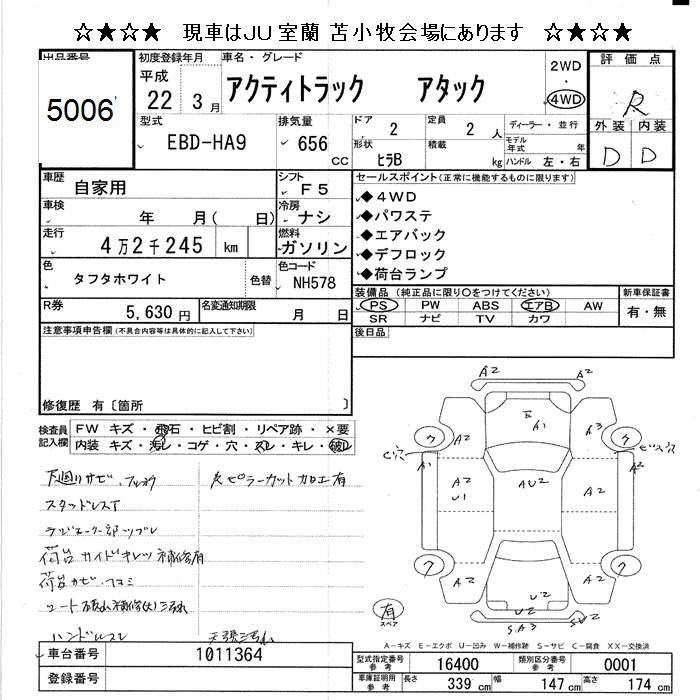 ☆★☆★ 現車はＪＵ室蘭 苫小牧会場にあります ☆★☆★
出品番号
5006
初度登録年月
平成
22 3月
車名・グレード
アクティトラック アタック
2WD
・
4WD
評価点
R
外装 内装
D D
型式
EBD-HA9
排気量
656
CC
ドア
2
定員
2 人
ディーラー・並行
形状
ﾋﾗB
積載
kg
モデル年式 年
ハンドル 左・右
車歴
自家用
シフト
F5
車検
年 月( 日)
冷房
ナシ
走行
4万2千245 km
燃料
ガソリン
色
タフタホワイト
色替
色コード
NH578
R券
5,630 円
名変通知期限
月 日
セールスポイント(正常に機能するものに限ります)
◆4WD
◆パワステ
◆エアバック
◆デフロック
◆荷台ランプ
装備品 (純正品に限り〇をつけてください)
PS PW ABS エアB AW
SR ナビ TV カワ
新車保証書
有・無
後日品
注意事項申告欄(不具合内容等は具体的に記入して下さい)
修復歴 有〔箇所 〕
検査員記入欄
FW キズ・飛石・ヒビ割・リペア跡・×要
内装 キズ・汚レ・コゲ・穴・スレ・キレ・破レ
下廻りサビ・
スタッドレスT
荷台ガイドキレツ補修有
ハンドルスレ
ピラーカット加工有
A2 A2
A1
A2 A3
ワ ワ
ビス穴
A1 A2
A2
U1
AU2
A2
ワ ワ
A2 A2
U2
U2
SA3
有
スペア
A-キズ E-エクボ U-凹み W-補修跡 S-サビ C-腐食 XX-交換済
車台番号
1011364
登録番号
型式指定番号
参考
16400
類別区分番号
参考
0001
車庫証明用
参考
長さ 339 cm 幅 147 cm 高さ 174 cm